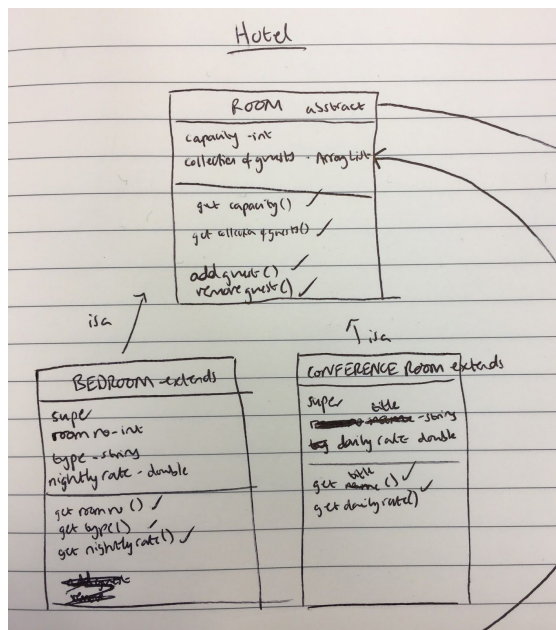 Hotel
ROOM abstract
capacity - int
collection of guests - ArrayList
get capacity() ✓
get collection of guests() ✓
add guest() ✓
remove guest() ✓
isa
isa
BEDROOM - extends
super
room no - int
type - string
nightly rate - double
get room no () ✓
get type() ✓
get nightly rate() ✓
CONFERENCE ROOM extends
super
title - string
daily rate double
get title () ✓
get daily rate() ✓